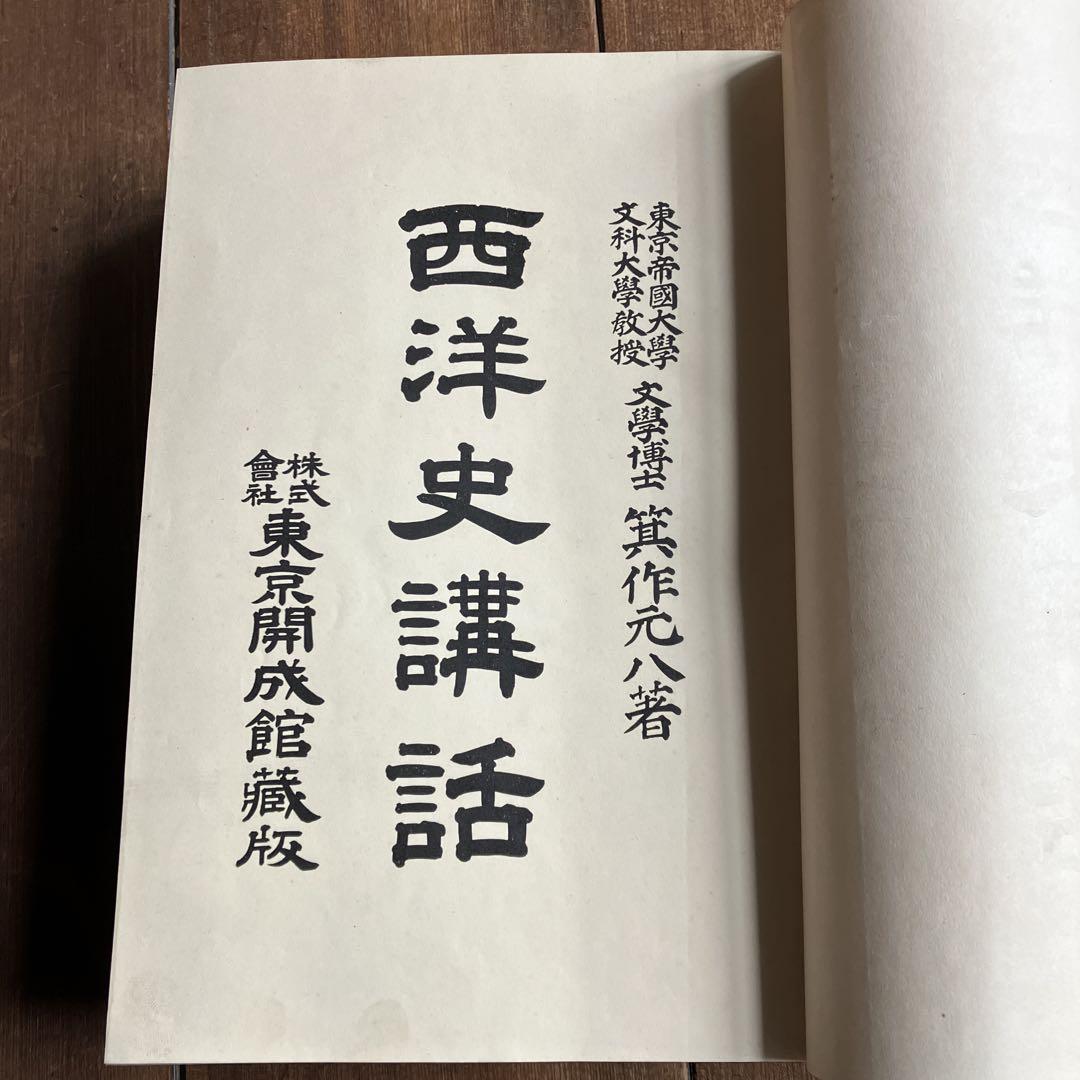 東京帝國大學
文科大學教授
文學博士 箕作元八著
西洋史講話
株式
會社
東京開成館藏版